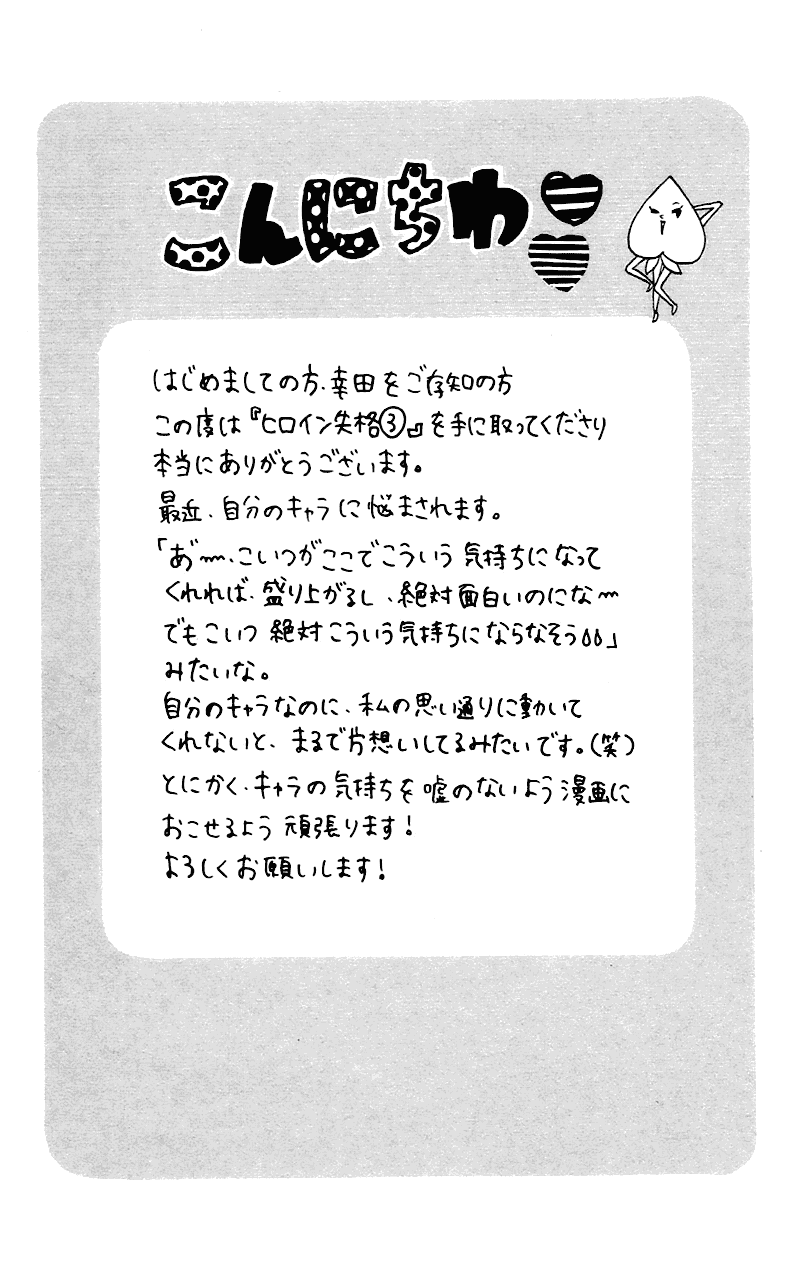 こんにちわ
はじめましての方、幸田をご存知の方
この度は『ヒロイン失格③』を手に取ってくださり
本当にありがとうございます。
最近、自分のキャラに悩まされます。
「あ゛〜、こいつがここでこういう気持ちになって
くれれば、盛り上がるし、絶対面白いのにな〜
でもこいつ絶対こういう気持ちにならなそう」
みたいな。
自分のキャラなのに、私の思い通りに動いて
くれないと、まるで片想いしてるみたいです。(笑)
とにかく、キャラの気持ちを嘘のないよう漫画に
おこせるよう頑張ります!
よろしくお願いします!